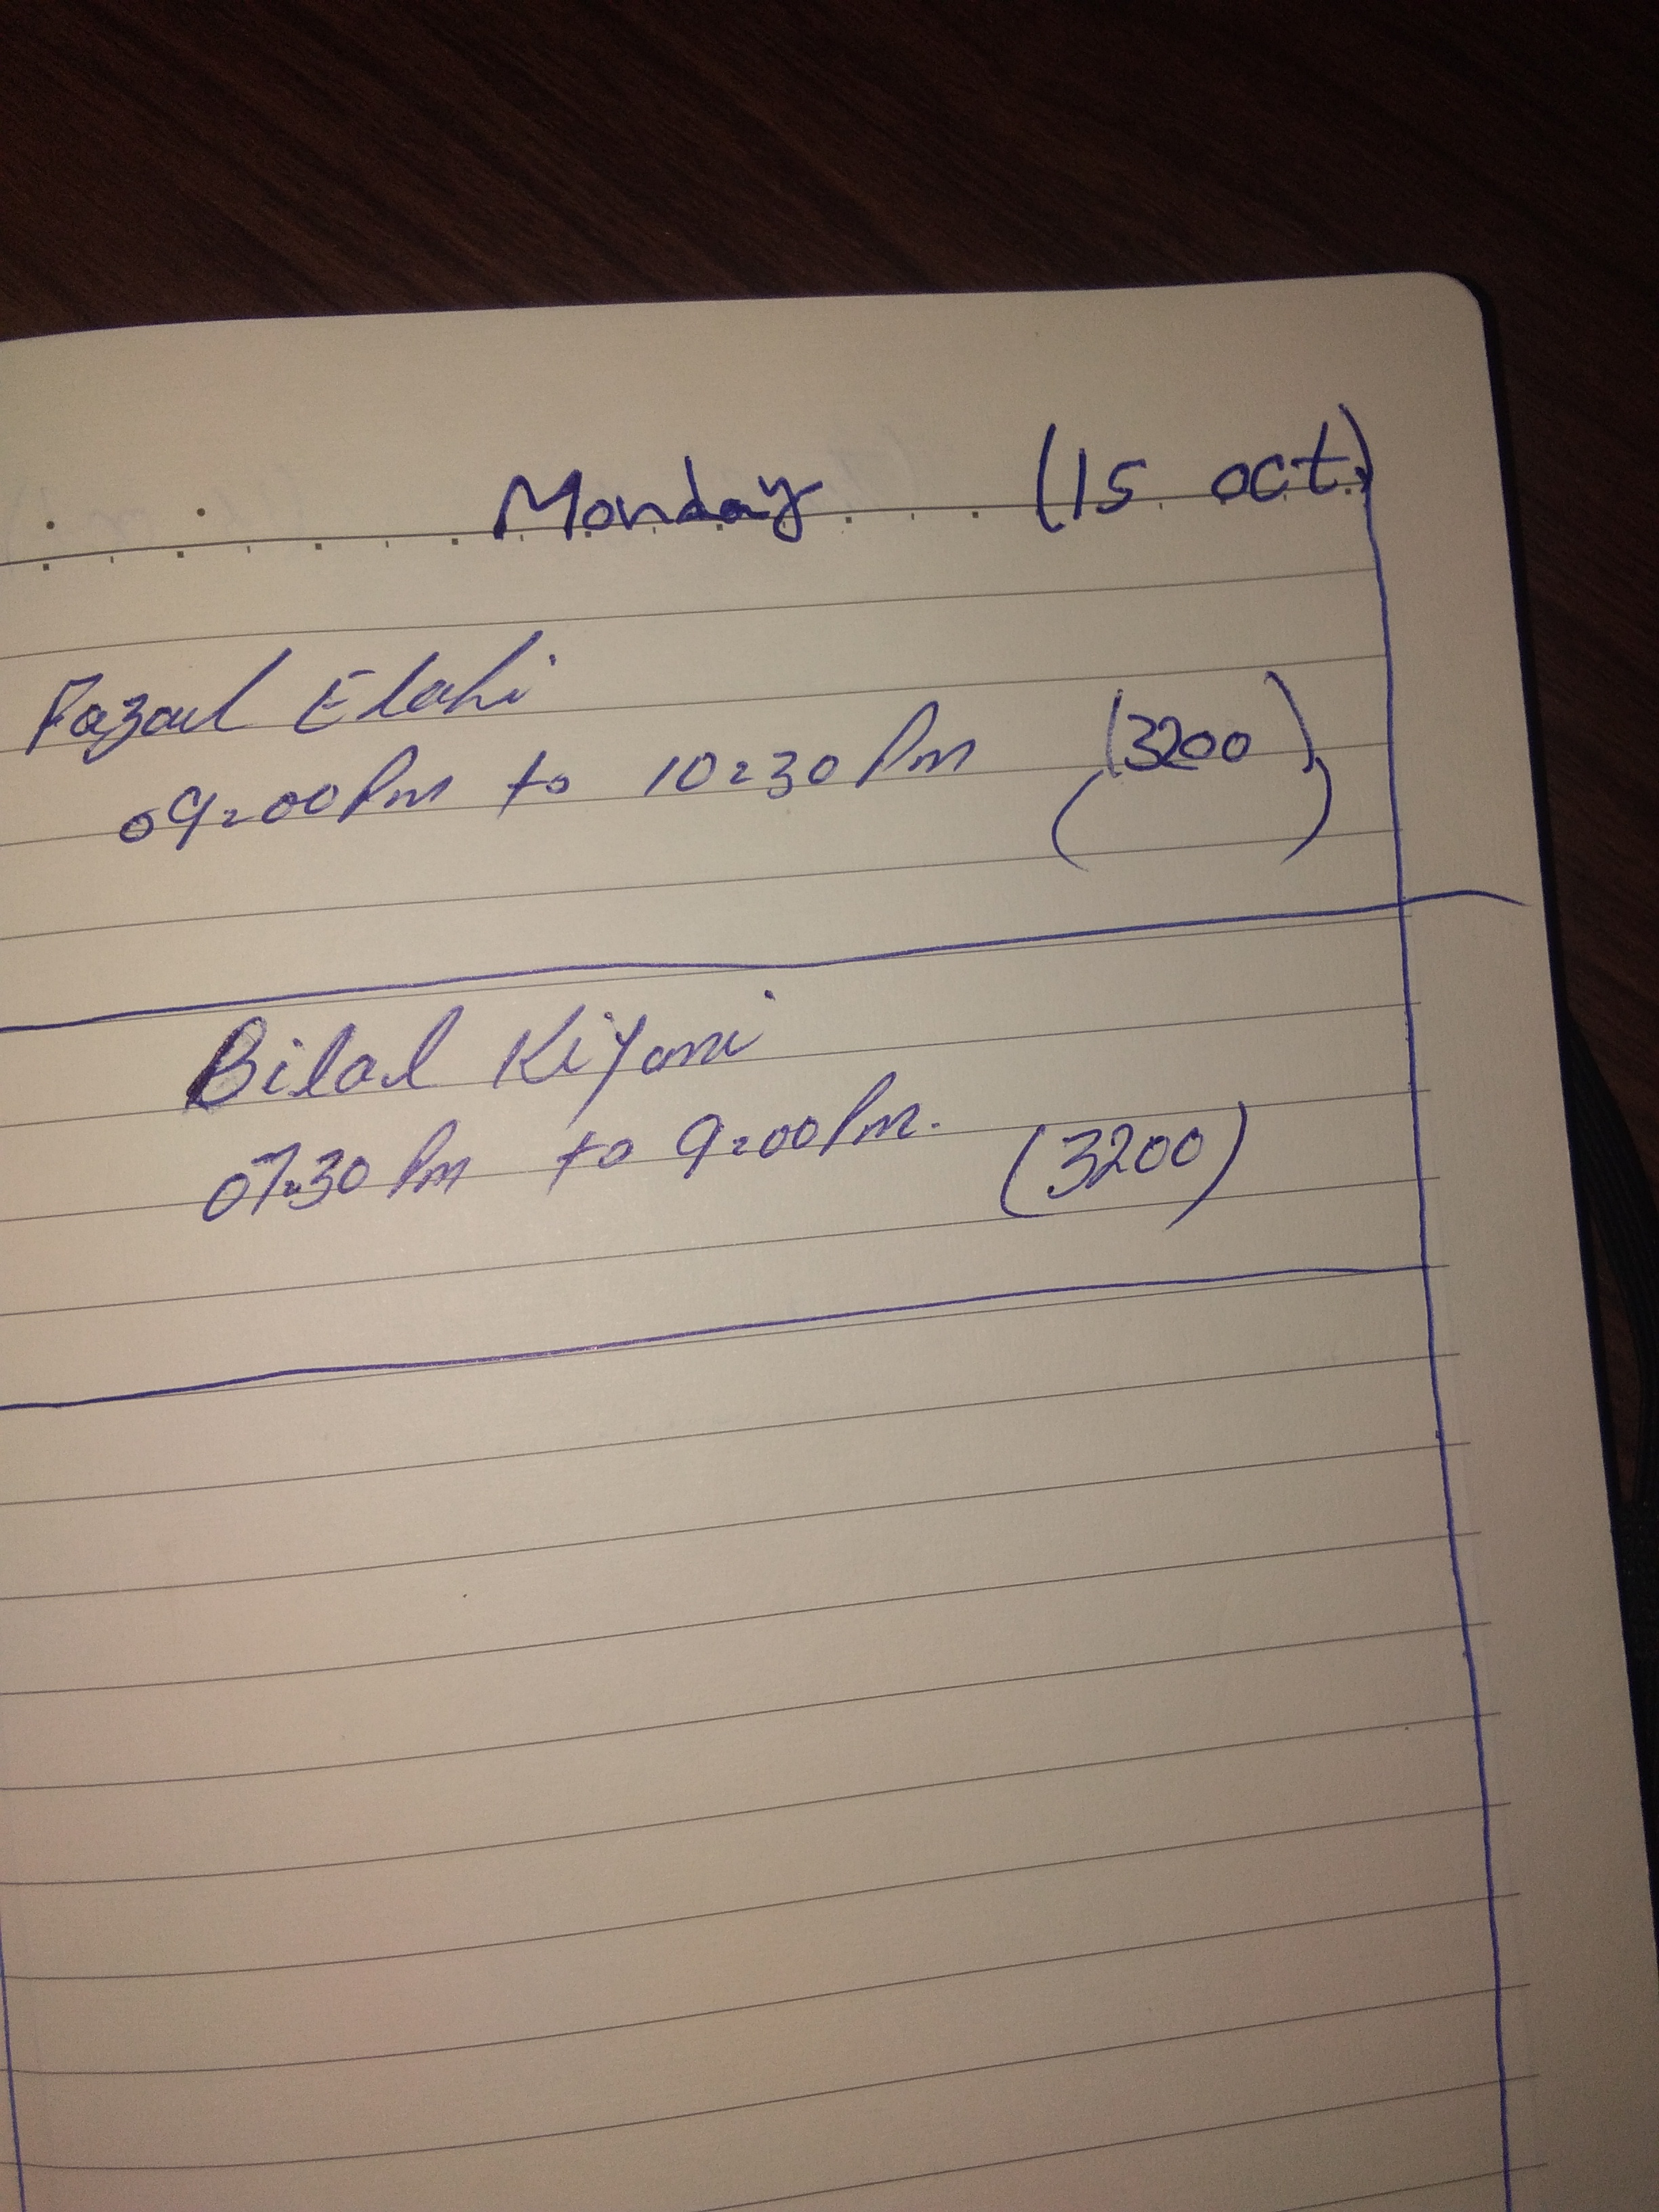 Monday (15 oct)
Fazaul Elahi
09:00 Pm to 10:30 Pm (3200)
Bilal Kiyani
07:30 Pm to 9:00 Pm. (3200)